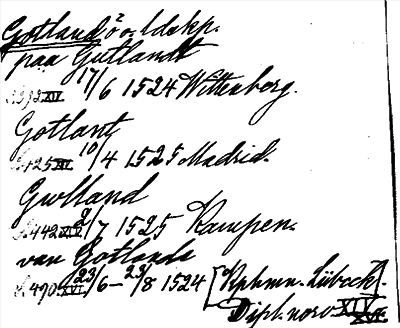 Gotland ö o. ldskp.
paa Gutlandt
S. 392 XIV 17/6 1524 Wittenborg.
Gotlant
S. 425 XIV 10/4 1525 Madrid.
Gwlland
S. 442 XIV 2/7 1525 Kampen.
van Gotlande
S. 490 XVI 23/6 – 23/8 1524 [Kphmn. Lübeck].
Dipl. norv. XIV
XVI